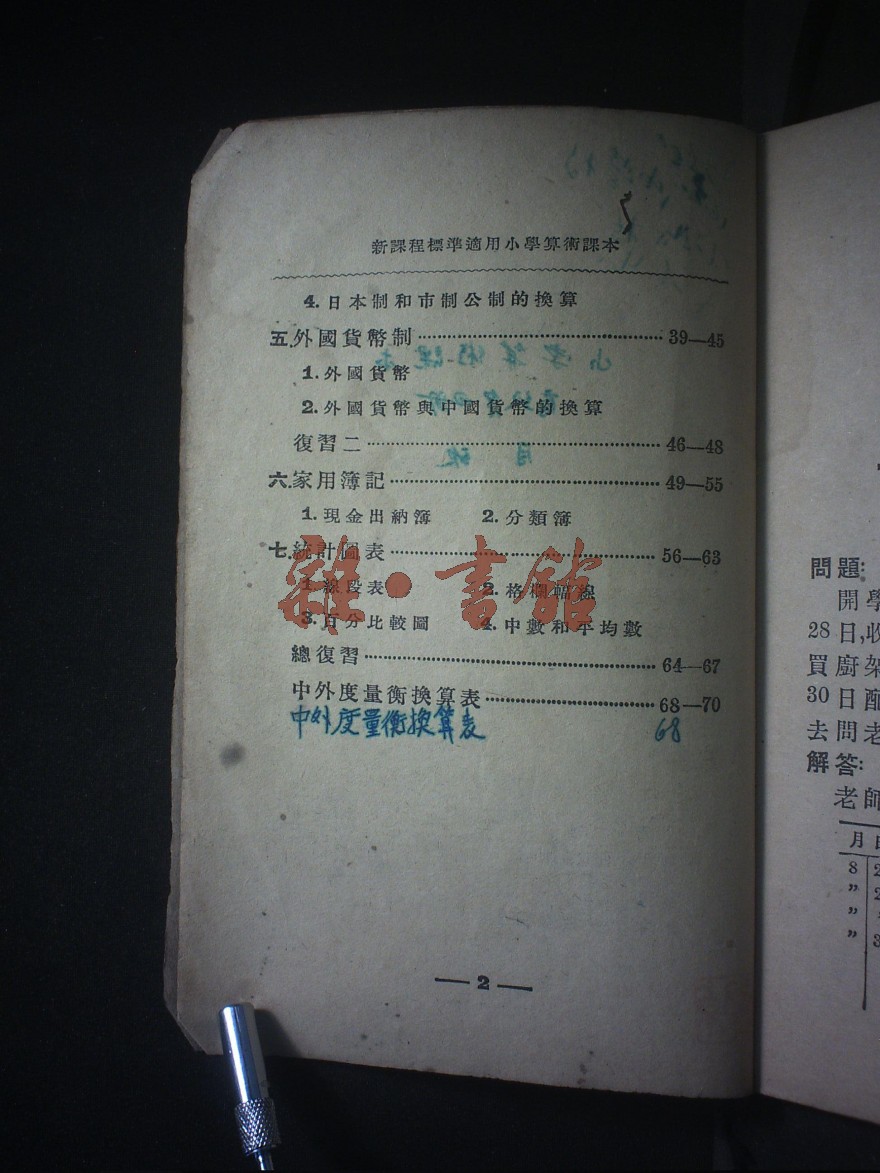 新課程標準適用小學算術課本
4. 日本制和市制公制的換算
五.外國貨幣制 39—45
1. 外國貨幣
2. 外國貨幣與中國貨幣的換算
復習二 46—48
六.家用簿記 49—55
1. 現金出納簿 2. 分類簿
七.統計圖表 56—63
1. 線段表 2. 格欄幅線
3. 百分比較圖 4. 中數和平均數
雜·書館
總復習 64—67
中外度量衡換算表 68—70
中外度量衡換算表 68
— 2 —
問題:
開學
28日,收
買廚架
30日配
去問老
解答:
老師
月
8 2
” 2
”
” 3